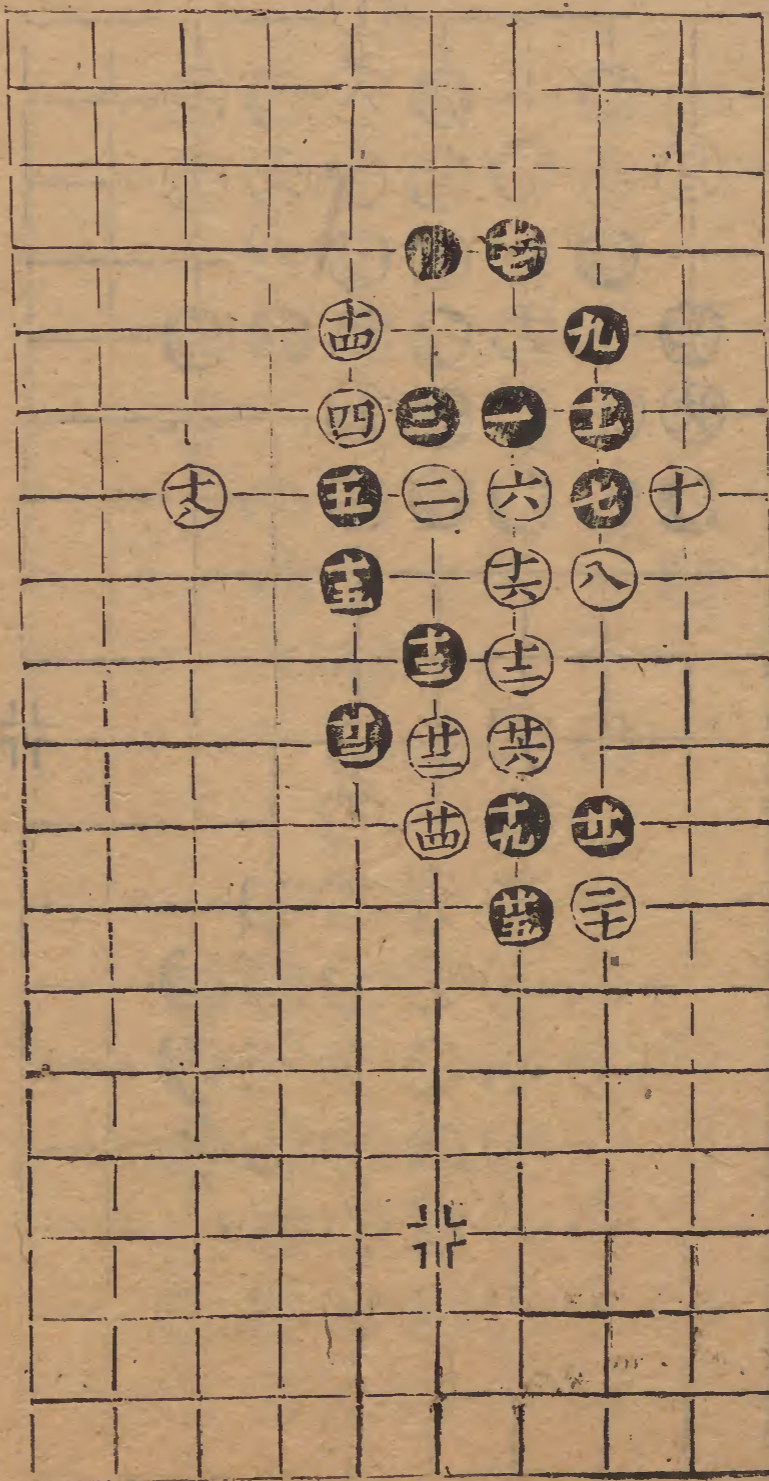 十七
十四 九
四 三 一 十一
十八 五 二 六 七 十
十五 十六 八
十三 十二
廿三 廿二 廿六
廿四 十九 廿一
廿五 二十